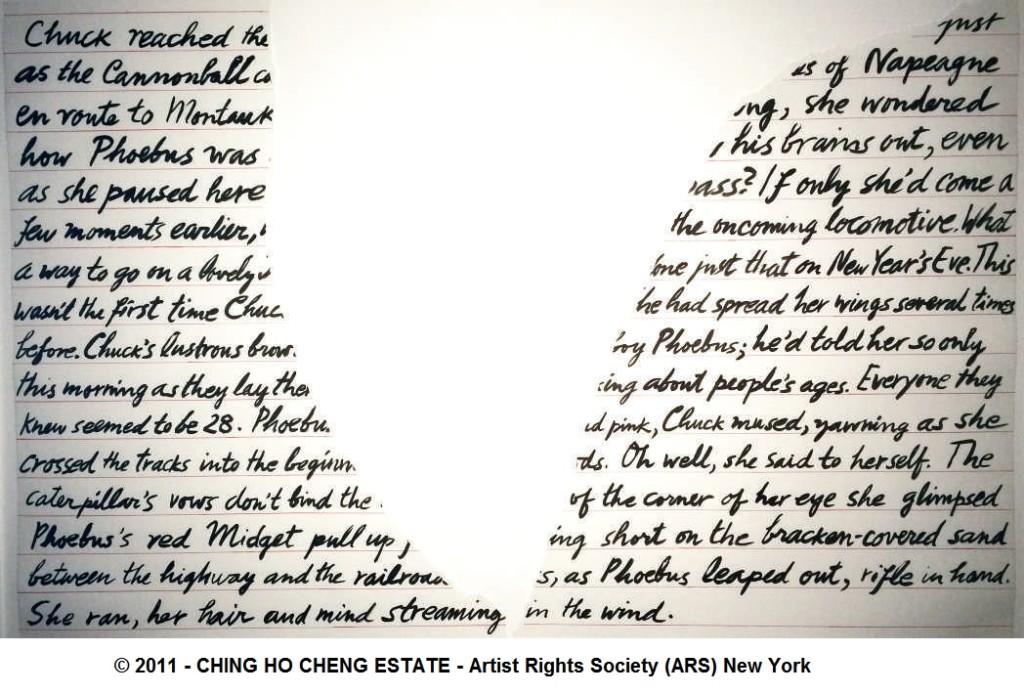 Chuck reached the just
as the Cannonball c es of Napeague
en route to Montauk ng, she wondered
how Phoebus was his brains out, even
as she paused here ass? If only she'd come a
few moments earlier, the oncoming locomotive. What
a way to go on a lovely one just that on New Year's Eve. This
wasn't the first time Chuc he had spread her wings several times
before. Chuck's lustrous brow oy Phoebus; he'd told her so only
this morning as they lay the ing about people's ages. Everyone they
knew seemed to be 28. Phoebu d pink, Chuck mused, yawning as she
crossed the tracks into the beginn ds. Oh well, she said to herself. The
caterpillar's vows don't bind the of the corner of her eye she glimpsed
Phoebus's red Midget pull up, ing short on the bracken-covered sand
between the highway and the railroa s, as Phoebus leaped out, rifle in hand.
She ran, her hair and mind streaming in the wind.
© 2011 - CHING HO CHENG ESTATE - Artist Rights Society (ARS) New York